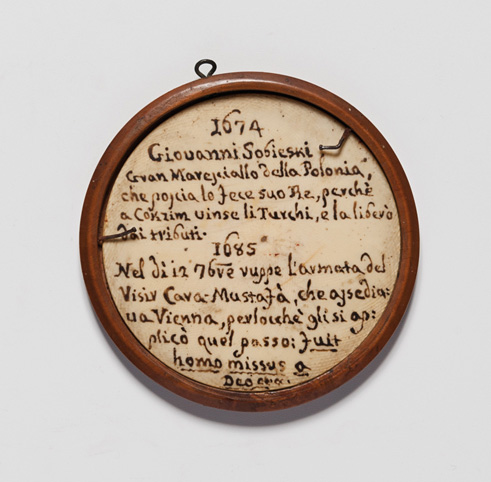 1674
Giovanni Sobieski
Gran Maresciallo della Polonia,
che poscia lo fece suo Re, perchè
a Coszim vinse li Turchi, e la liberò
dai tributi.
1685
Nel dì 12 7bre ruppe l'armata del
Visir Cara-Mustafà, che assedia:
va Vienna, perlocchè gli si ap:
plicò quel passo: fuit
homo missus a
Deo